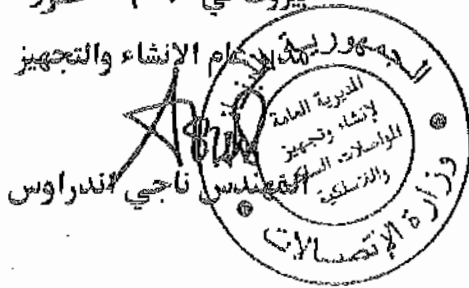 بيروت في
مدير عام الإنشاء والتجهيز
المهندس ناجي اندراوس
الجمهورية اللبنانية
وزارة الإتصالات
المديرية العامة
لإنشاء وتجهيز
المواصلات السلكية
واللاسلكية